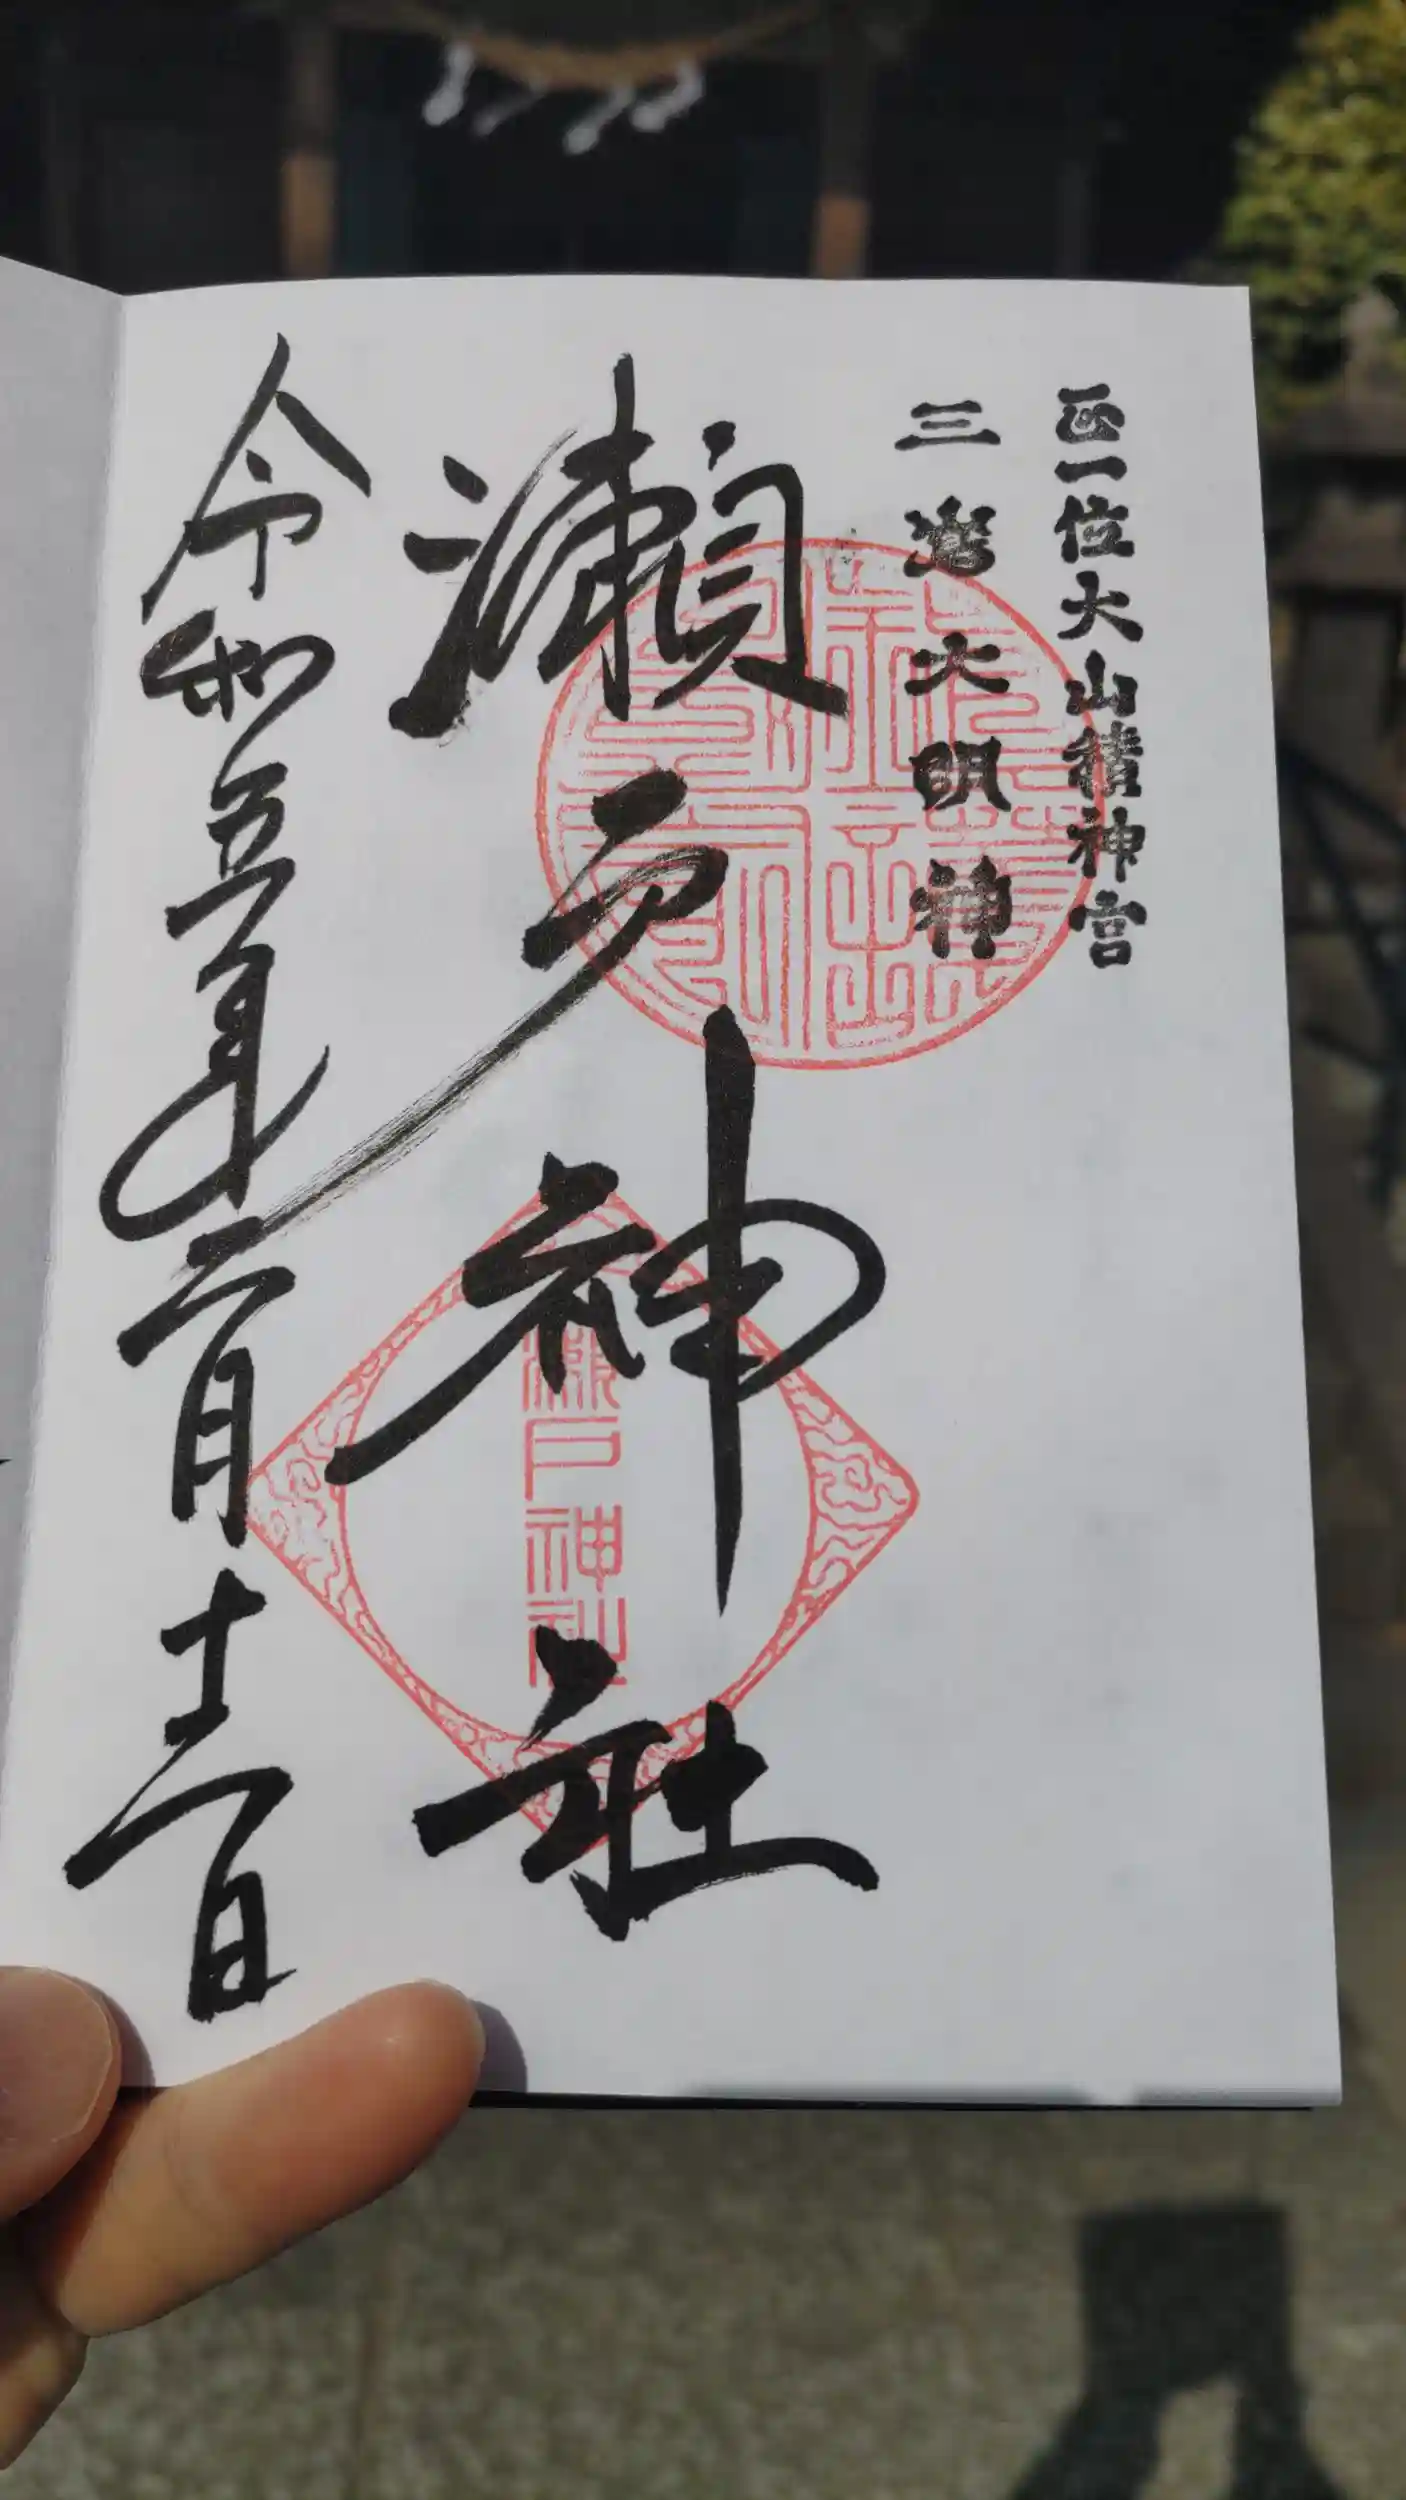 正一位大山積神宮
三嶌大明神
瀬戸神社
瀬戸神社
令和五年二月十二日